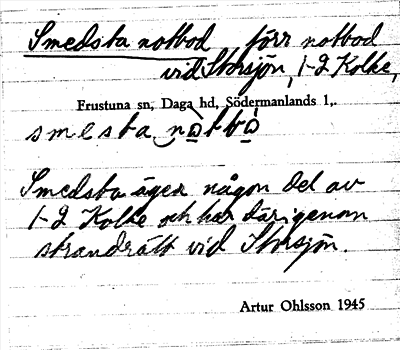 Smedsta notbod förr notbod
vid Storsjön, 1-2 Kolke,
Frustuna sn, Daga hd, Södermanlands l,.
smesta
Smedsta äger någon del av
1-2 Kolke och har därigenom
strandrätt vid Storsjön.
Artur Ohlsson 1945